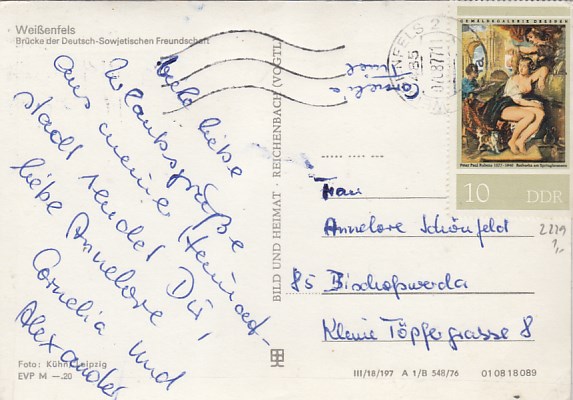 Weißenfels
Brücke der Deutsch-Sowjetischen Freundschaft
viele liebe
Urlaubsgrüße
aus meiner Heimat-
stadt sendet Dir,
liebe Annelore,
Cornelia und
Alexander
Foto: Kühn, Leipzig
EVP M —.20
BILD UND HEIMAT · REICHENBACH (VOGTL
Cornelia
GEMÄLDEGALERIE DRESDEN
Peter Paul Rubens 1577-1640 Bathseba am Springbrunnen
10 DDR
2229
1,-
Frau
Annelore Schönfeld
85 Bischofswerda
Kleine Töpfergasse 8
III/18/197 A 1/B 548/76 01 08 18 089